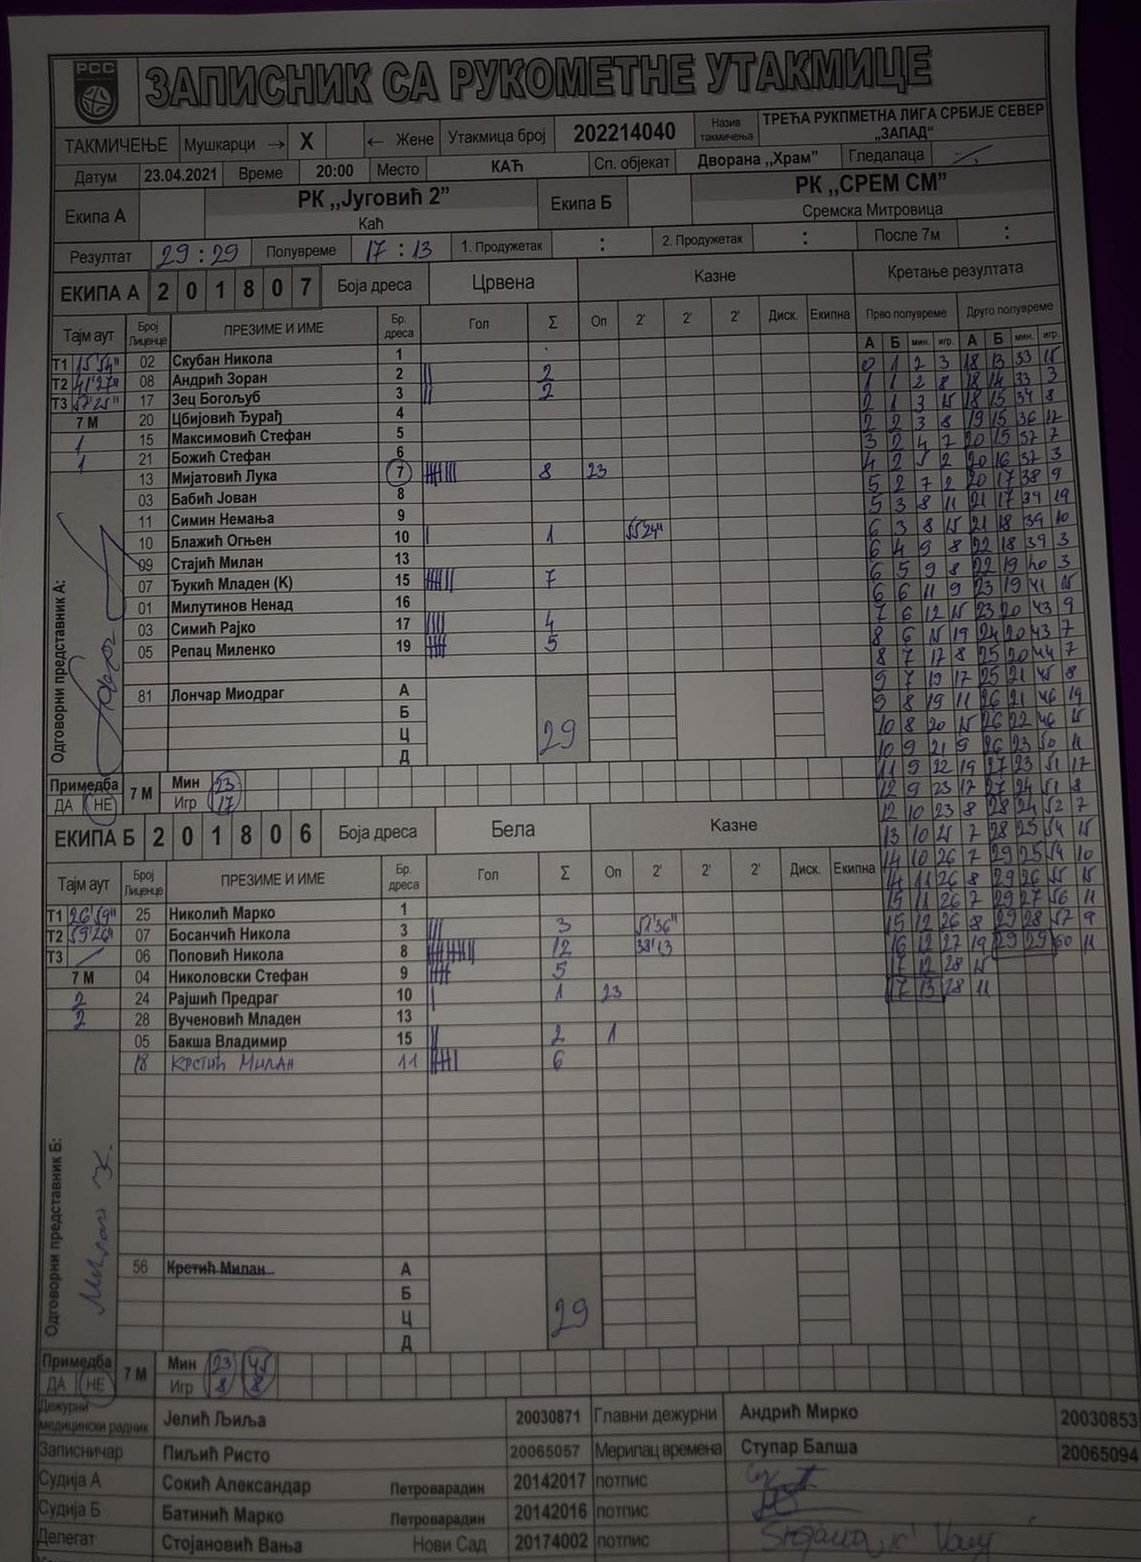 РСС
ЗАПИСНИК СА РУКОМЕТНЕ УТАКМИЦЕ
ТАКМИЧЕЊЕ Мушкарци → X ← Жене Утакмица број 202214040 Назив такмичења ТРЕЋА РУКПМЕТНА ЛИГА СРБИЈЕ СЕВЕР „ЗАПАД”
Датум 23.04.2021 Време 20:00 Место КАЋ Сп. објекат Дворана ,,Храм” Гледалаца
Екипа А РК ,,Југовић 2” Екипа Б РК ,,СРЕМ СМ”
Каћ Сремска Митровица
Резултат 29:29 Полувреме 17:13 1. Продужетак : 2. Продужетак : После 7м :
ЕКИПА А 2 0 1 8 0 7 Боја дреса Црвена Казне Кретање резултата
Тајм аут Број Лиценце ПРЕЗИМЕ И ИМЕ Бр. дреса Гол Σ Оп 2' 2' 2' Диск. Екипна Прво полувреме Друго полувреме
А Б мин. игр. А Б мин. игр.
Т1 15'54" 02 Скубан Никола 1 0 1 2 3 18 13 33 15
Т2 41'27" 08 Андрић Зоран 2 2 1 1 2 8 18 14 33 3
Т3 57'25" 17 Зец Богољуб 3 2 2 1 3 15 18 15 34 8
7 М 20 Цбијовић Ђурађ 4 2 2 3 8 19 15 36 17
1 15 Максимовић Стефан 5 3 2 4 7 20 15 37 7
1 21 Божић Стефан 6 4 2 5 2 20 16 37 3
13 Мијатовић Лука 7 8 23 5 2 7 2 20 17 38 9
03 Бабић Јован 8 5 3 8 11 21 17 39 19
11 Симин Немања 9 6 3 8 15 21 18 39 10
10 Блажић Огњен 10 1 55'24" 6 4 9 8 22 18 39 3
09 Стајић Милан 13 6 5 9 8 22 19 40 3
07 Ђукић Младен (К) 15 7 6 6 11 9 23 19 41 15
01 Милутинов Ненад 16 7 6 12 15 23 20 43 9
03 Симић Рајко 17 4 8 6 15 19 24 20 43 7
05 Репац Миленко 19 5 8 7 17 8 25 20 44 7
9 7 19 17 25 21 45 8
81 Лончар Миодраг А 9 8 19 11 26 21 46 19
Б 10 8 20 15 26 22 46 15
Ц 29 10 9 21 9 26 23 50 11
Д 11 9 22 19 27 23 51 17
Примедба 7 М Мин 23 12 9 23 17 27 24 51 8
ДА НЕ Игр 17 12 10 23 8 28 24 52 7
ЕКИПА Б 2 0 1 8 0 6 Боја дреса Бела Казне 13 10 25 7 28 25 54 15
14 10 26 7 29 25 54 10
Тајм аут Број Лиценце ПРЕЗИМЕ И ИМЕ Бр. дреса Гол Σ Оп 2' 2' 2' Диск. Екипна 14 11 26 8 29 26 55 15
Т1 26'59" 25 Николић Марко 1 15 11 26 7 29 27 56 11
Т2 59'26" 07 Босанчић Никола 3 3 51'36" 15 12 26 8 29 28 57 9
Т3 06 Поповић Никола 8 12 38'13 16 12 27 19 29 29 60 11
7 М 04 Николовски Стефан 9 5 17 12 28 15
2 24 Рајшић Предраг 10 1 23 17 13 28 11
2 28 Вученовић Младен 13
05 Бакша Владимир 15 2 1
18 Крстић Милан 11 6
Одговорни представник А:
Одговорни представник Б:
56 Кретић Милан А
Б
Ц 29
Д
Примедба 7 М Мин 23 45
ДА НЕ Игр 8 8
Дежурни медицински радник Јелић Љиља 20030871 Главни дежурни Андрић Мирко 20030853
Записничар Пиљић Ристо 20065057 Мерилац времена Ступар Балша 20065094
Судија А Сокић Александар Петроварадин 20142017 потпис
Судија Б Батинић Марко Петроварадин 20142016 потпис
Делегат Стојановић Вања Нови Сад 20174002 потпис